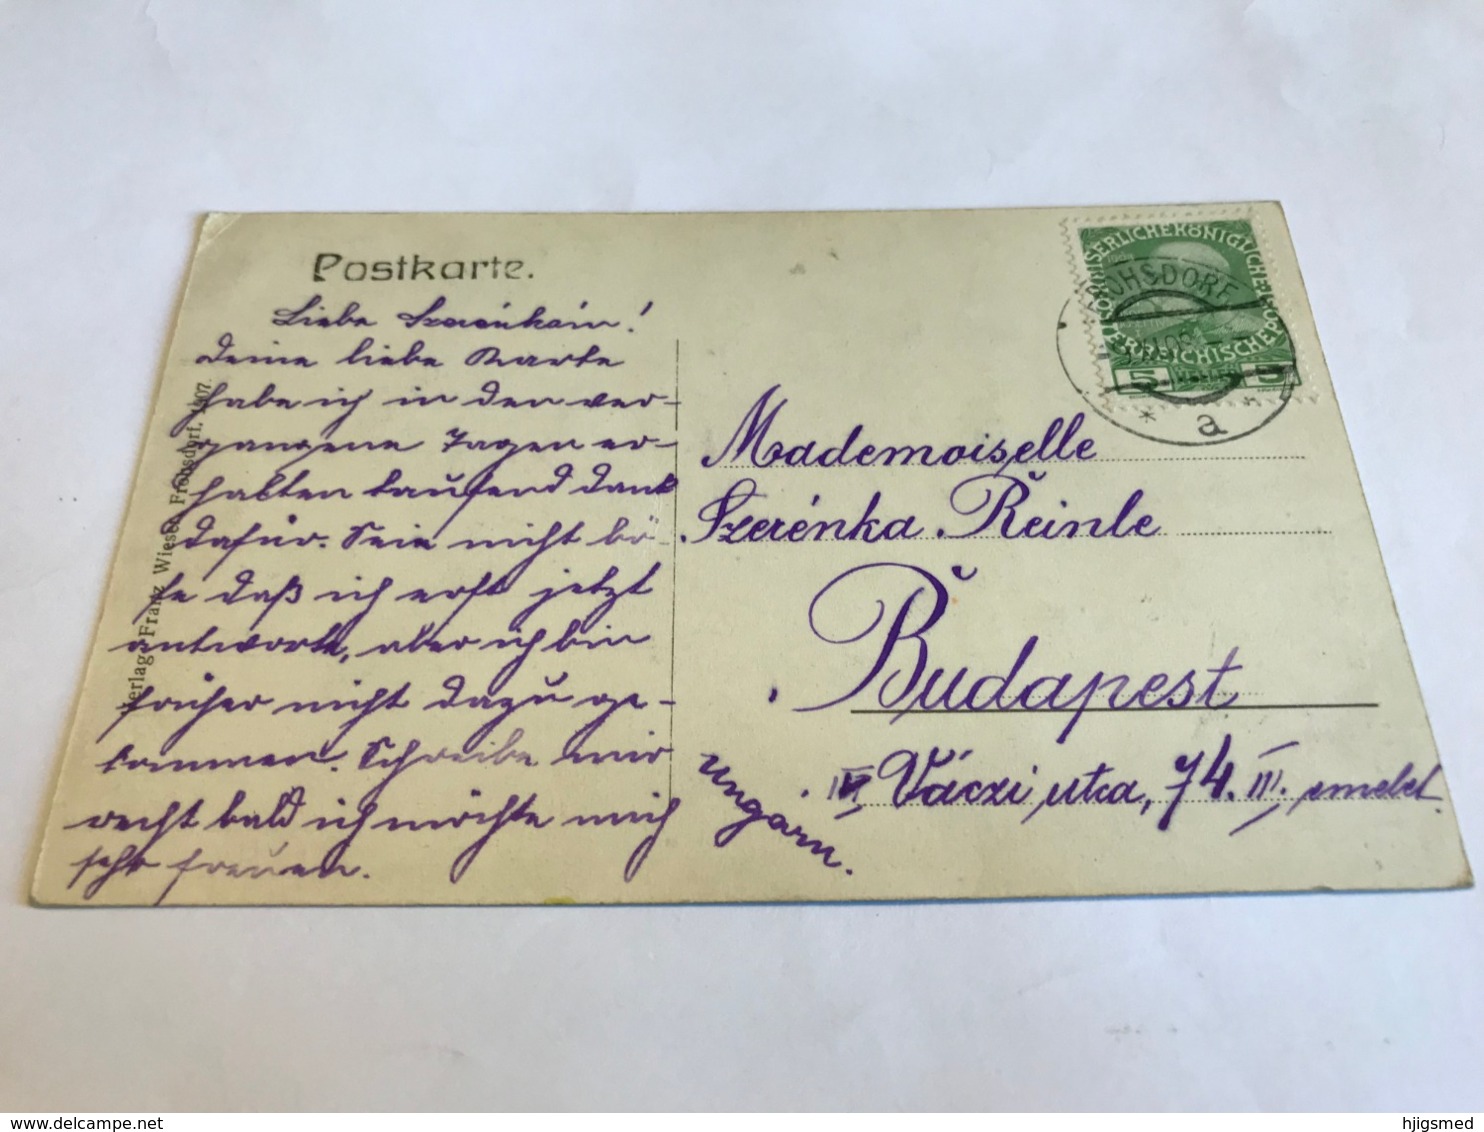 Postkarte.
Liebe Szerénkain!
Deine liebe Karte
habe ich in den ver-
gangene Tagen er-
halten tausend Dank
dafür. Seie nicht bö-
se daß ich erst jetzt
antworte, aber ich bin
früher nicht dazu ge-
kommen. Schreibe mir
recht bald ich möchte mich
sehr freuen.
Verlag Franz Wiesler Frohsdorf, 1907.
KAISERLICHE KÖNIGLICHE
ÖSTERREICHISCHE POST
5 5
FROHSDORF
* a *
Mademoiselle
Szerénka Reinle
Budapest
IV. Váczi utca, 74. III. emelet
Ungarn.
www.delcampe.net
hjigsmed